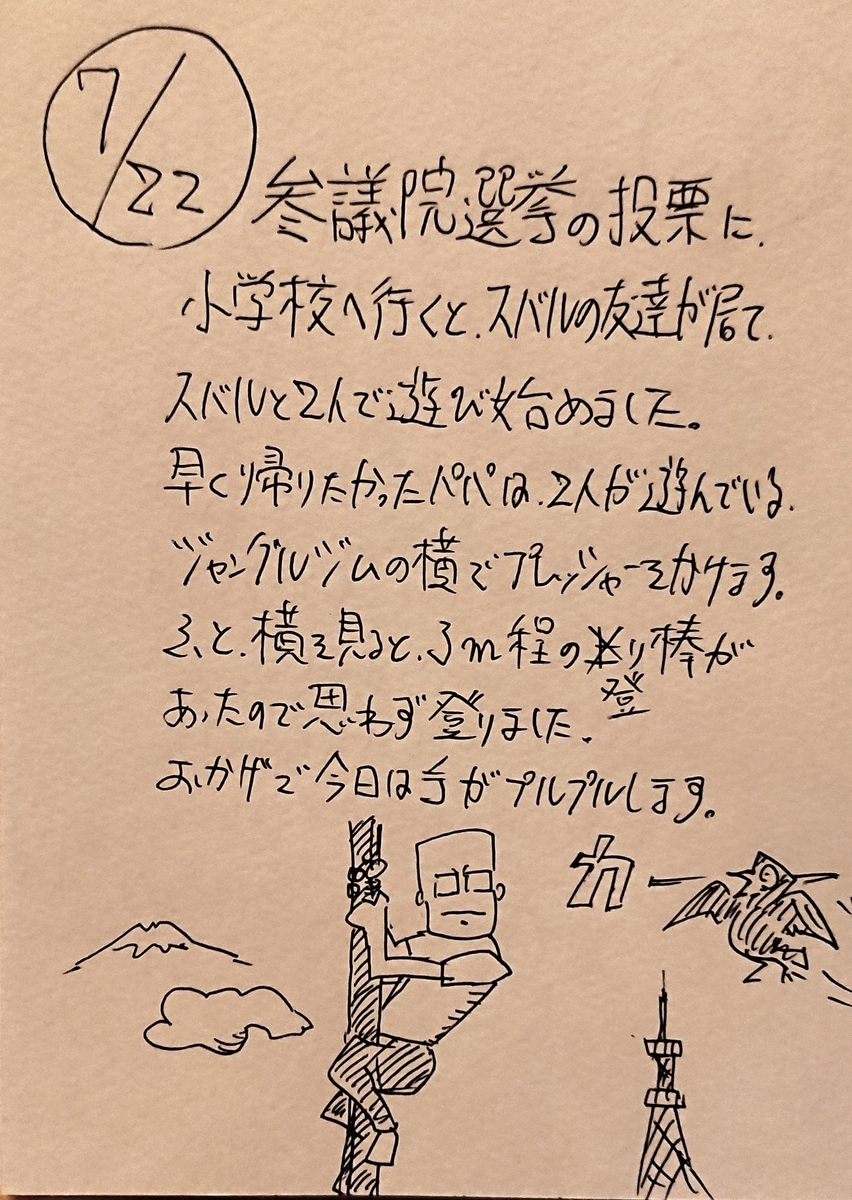 7/22
参議院選挙の投票に、
小学校へ行くと、スバルの友達が居て、
スバルと2人で遊び始めました。
早くり帰りたかったパパは、2人が遊んでいる、
ジャングルジムの横でプレッシャーをかけます。
ふと、横を見ると、3m程の り棒が
登
あったので思わず登りました。
おかげで今日は手がプルプルします。
カー